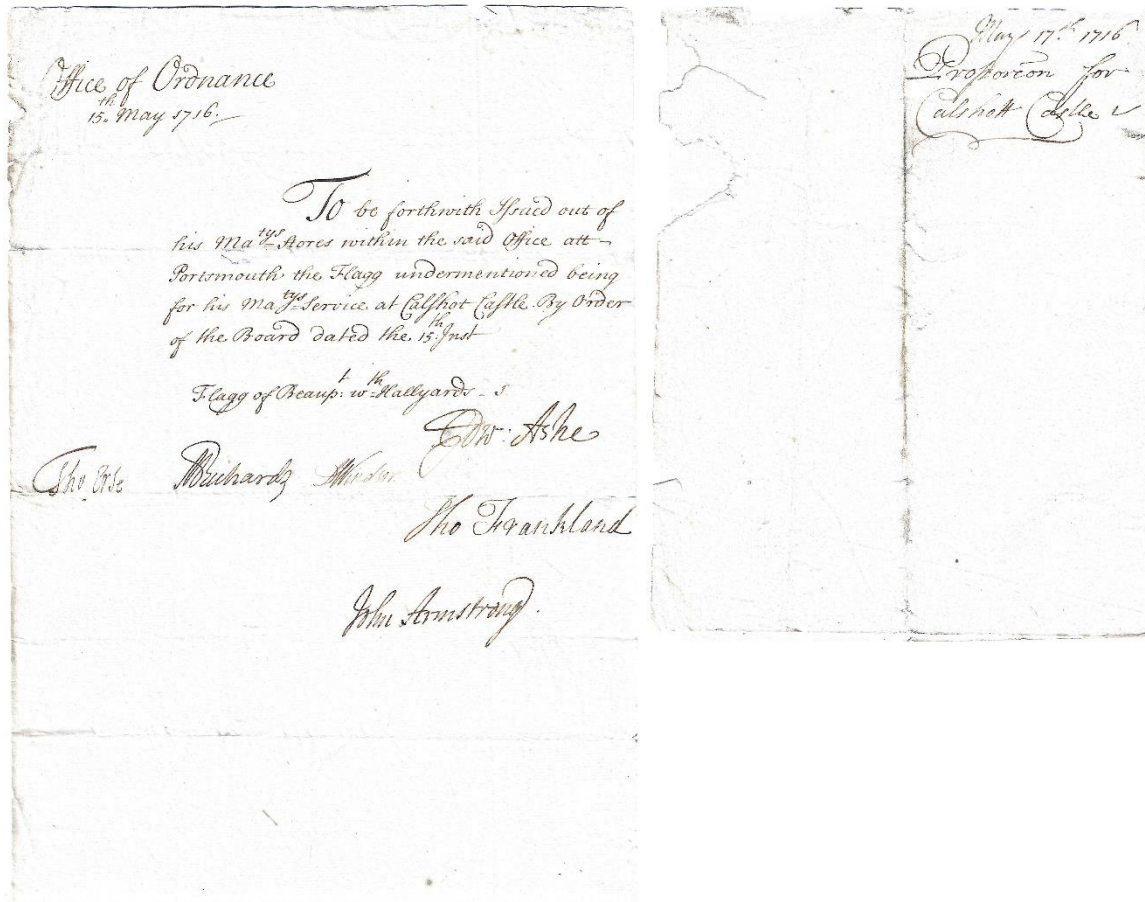 Office of Ordnance
15th May 1716.
To be forthwith Issued out of
his Matys Stores within the said Office att
Portsmouth the Flagg undermentioned being
for his Matys Service at Calshot Castle By Order
of the Board dated the 15th Inst
Flagg of Beaupt: wth Hallyards - 1
Edw: Ashe
MRichards
Tho Frankland
John Armstrong.
May 17th 1716
Proporcon for
Calshott Castle